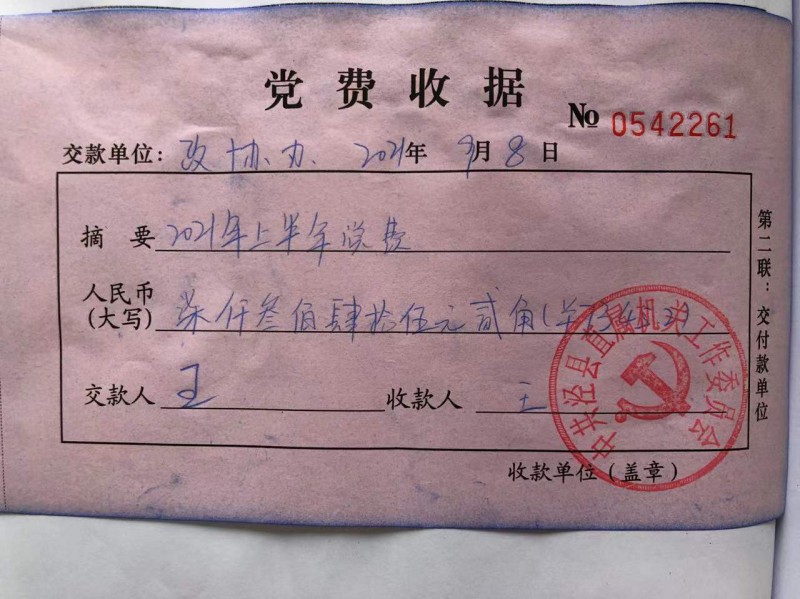 党费收据
№ 0542261
交款单位：政协办. 2021年 9月 8日
摘要 2021年上半年党费
人民币（大写） 柒仟叁佰肆拾伍元贰角(￥7345.2)
交款人 王 收款人 王
收款单位（盖章）
第二联：交付款单位
中共泾县直属机关工作委员会